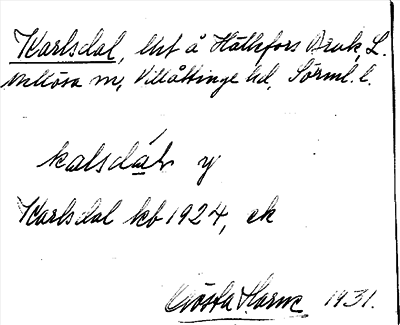 Karlsdal, lht å Hällefors Bruk, L.
Mellösa sn, Villåttinge hd, Sörml. l.
kalsdáɩ y
Karlsdal kb 1924, ek
Gösta Harne 1931.